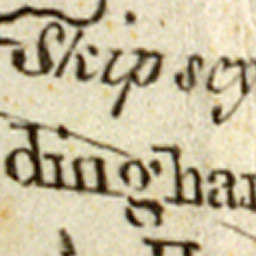 Skipsey
dinghar